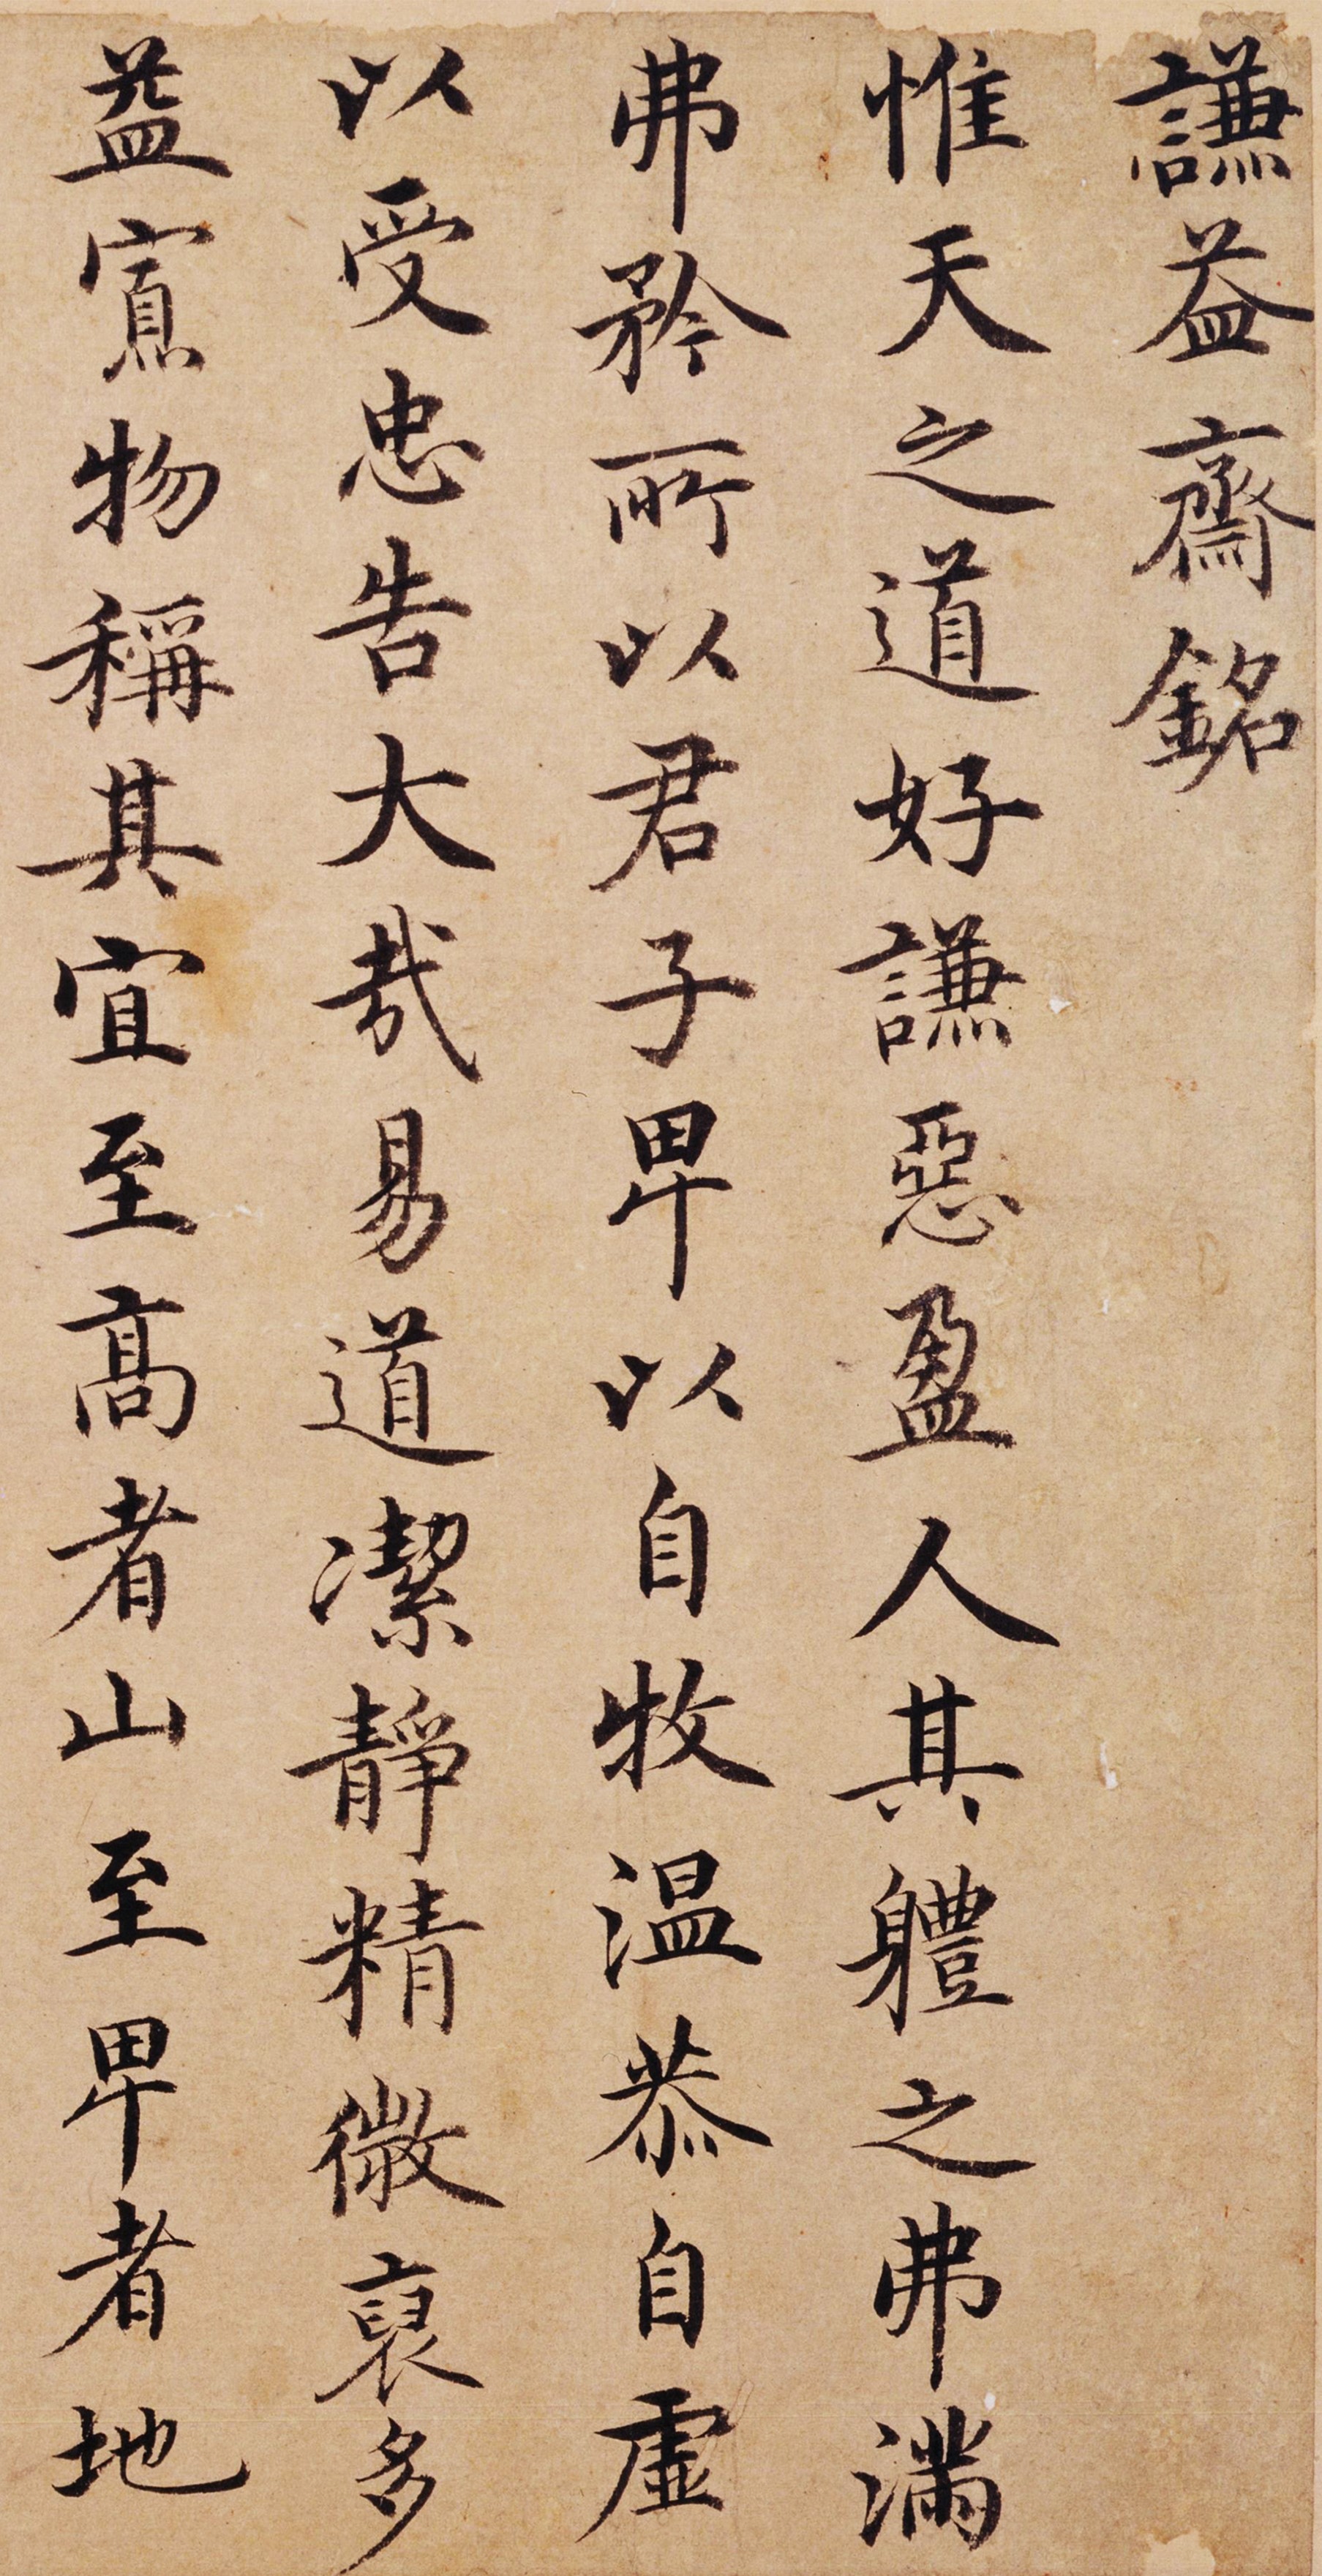 謙益齋銘
惟天之道好謙惡盈人其軆之弗滿
弗矜所以君子卑以自牧温恭自虛
以受忠告大哉易道潔靜精微裒多
益寡物稱其宜至高者山至卑者地